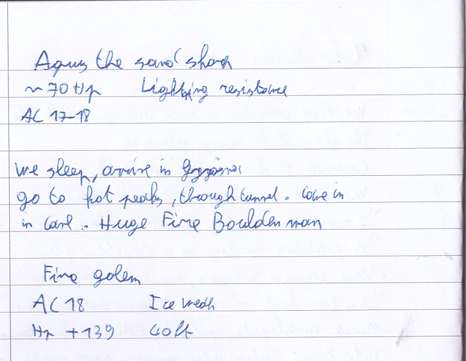 the sand shark
~70 Hp Lighting resistance
AC 17-18
we sleep, arrive in
go to hot peaks, through tunnel. come in
in . Huge Fire Boulder man
Fire golem
AC 18 Ice weak
Hp +139